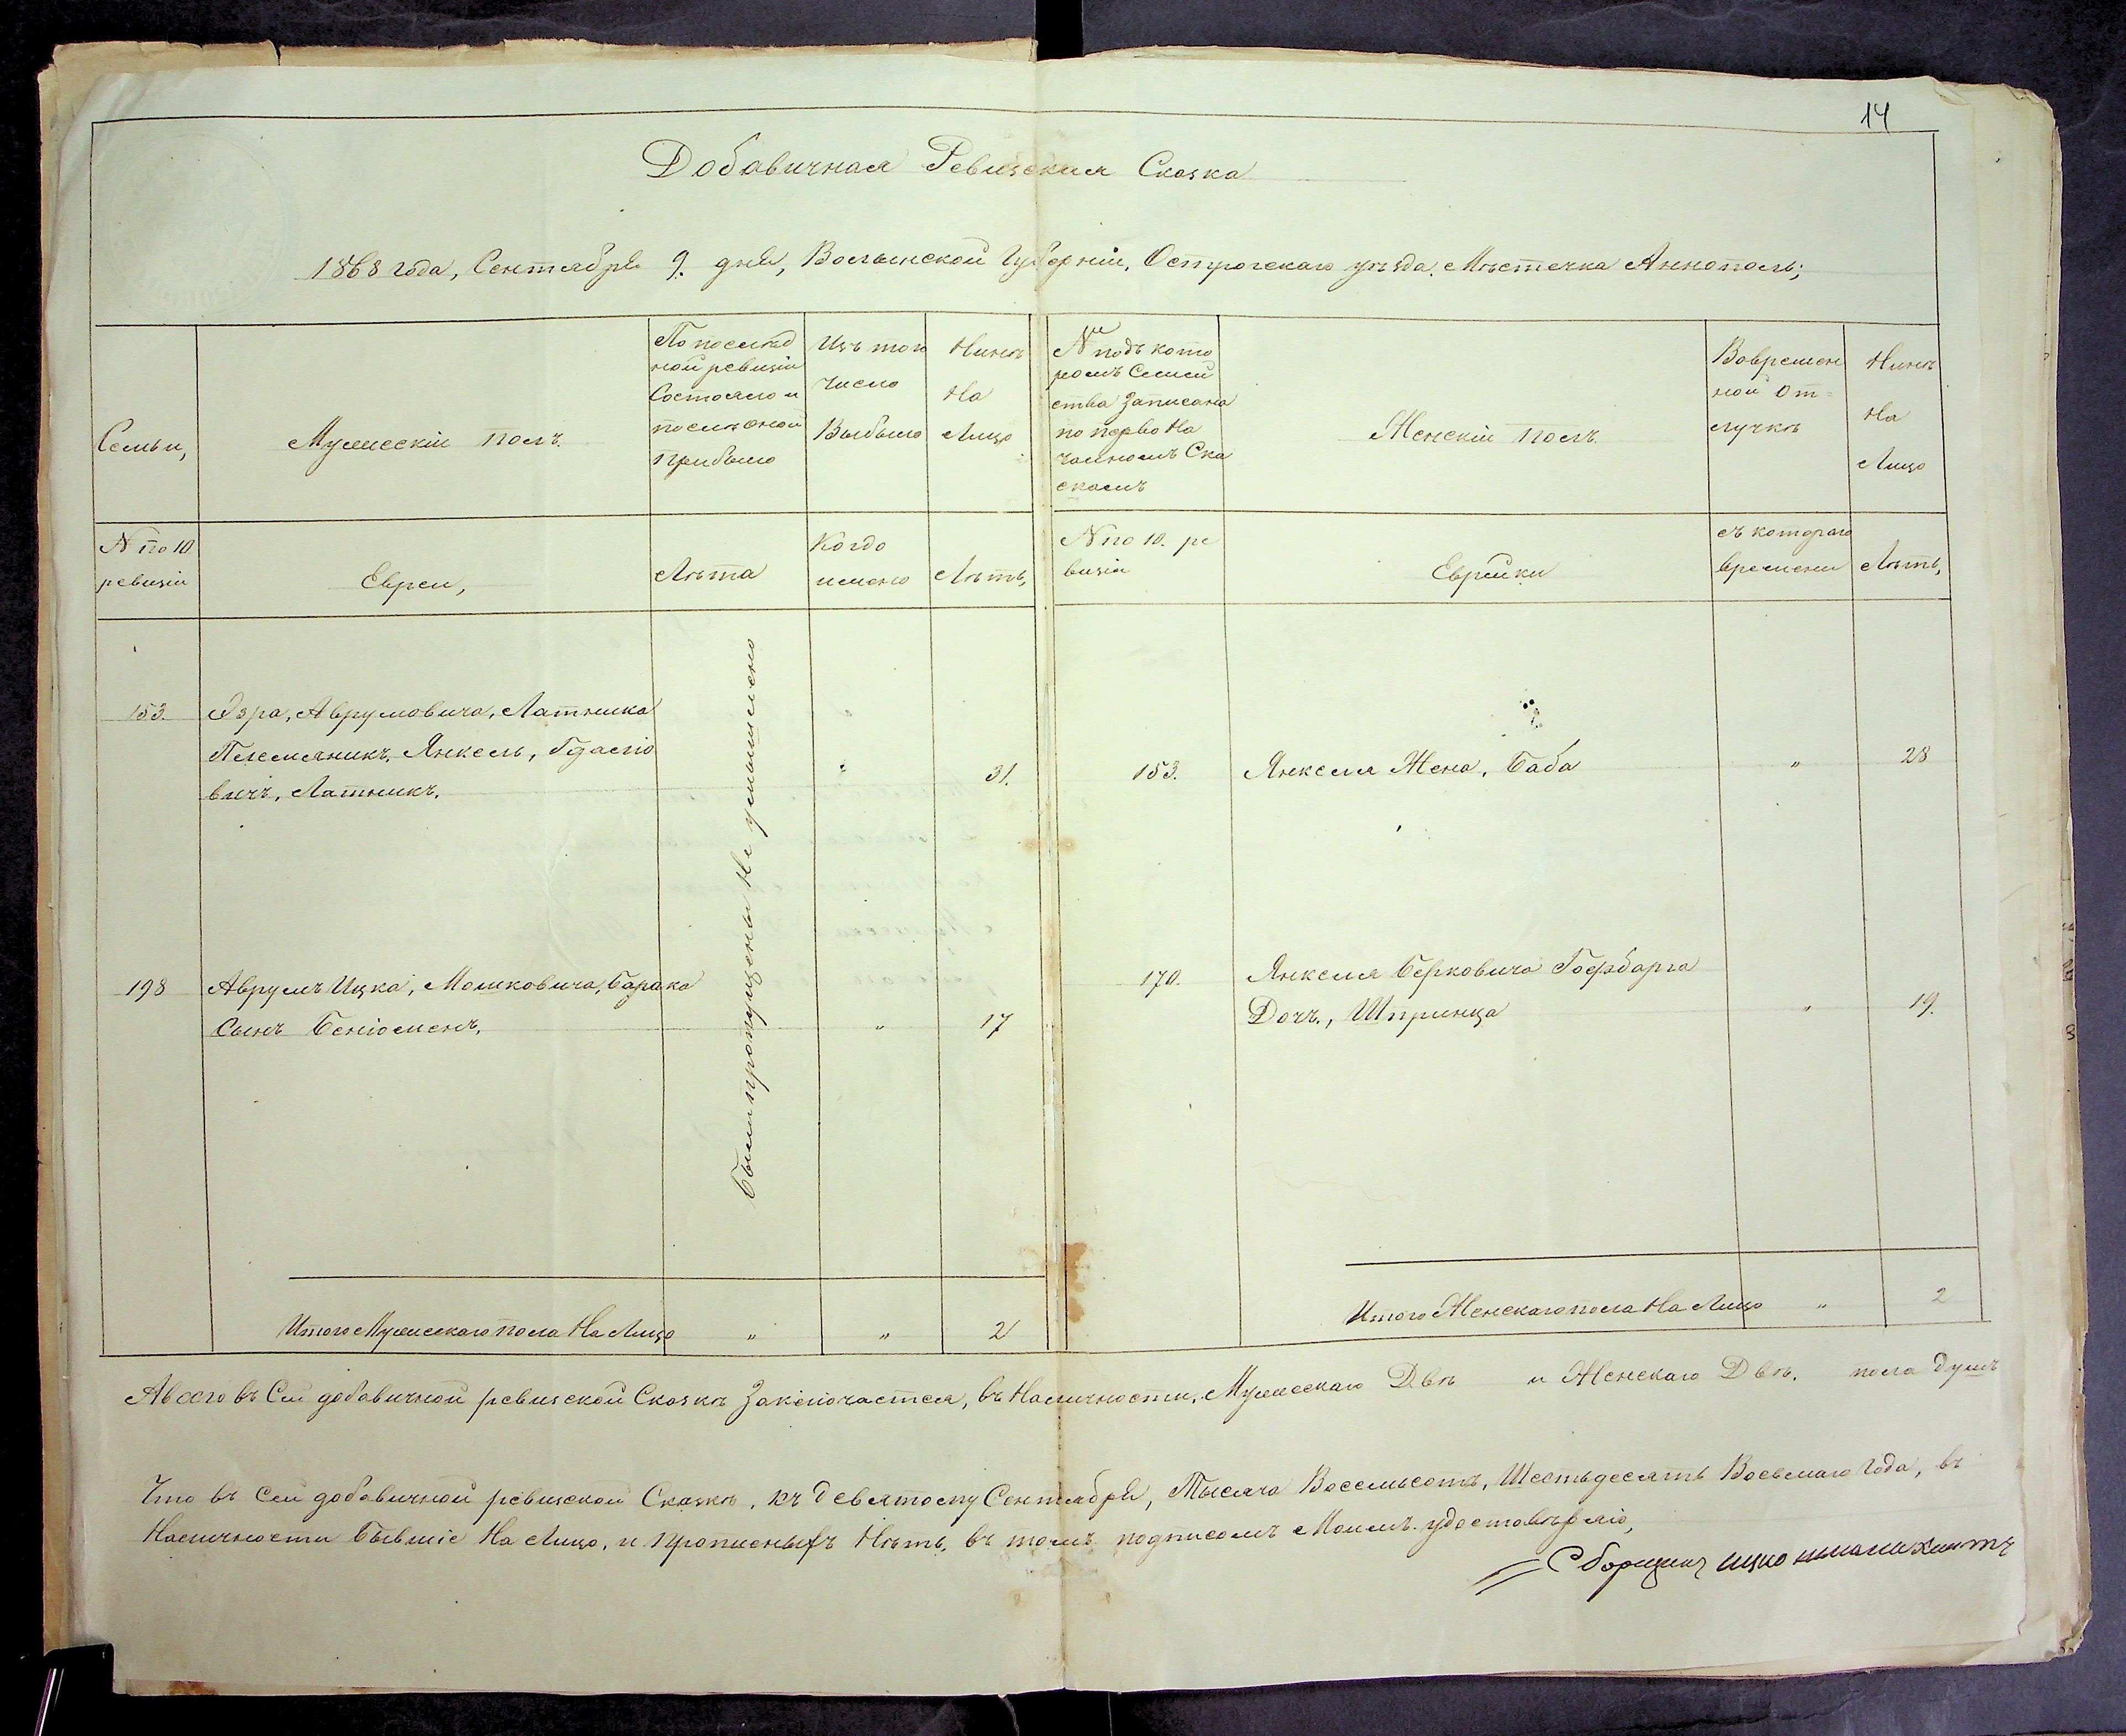 14
Добавичная Ревизская Сказка
1868 года, Сентября 9. дня, Волынской Губернии, Острогскаго уѣзда. Мѣстечка Аннополь;
Семьи,
Мужескій полъ.
По послѣд
ной ревизіи
Состояло и
послѣ оной
прибыло
Изъ того
число
Выбыло
Нинѣ
На
Лицо
№ подъ кото
ромъ Семей
ства Записано
по перво На
чалномъ Ска
скамъ
Женскій полъ
Вовремен
ной От=
лучкѣ
Нинѣ
На
Лицо
N по 10
ревизіи
Евреи,
Лѣта
Когдо
имено
Лѣтъ,
N по 10. ре
визіи
Еврейки
съ котораго
времени
Лѣтъ,
153. Эзра, Аврумовича, Латника
Племяникъ, Янкель, Гдаліо
вичъ, Латникъ. " 31.
153. Янкеля Жена, Баба " 28
Были пропущены Не умышлено
198 Аврумъ Ицка, Мошковича, Барака
Сынъ Беніоменъ. " 17
170. Янкеля Берковича Гофбарга
Дочь., Шпринца " 19.
Итого Мужескаго пола На Лицо " " 2
Итого Женскаго пола На Лицо " 2
А всего въ Сей добавичной ревизской Сказкѣ Заключается, въ Наличности, Мужескаго Двѣ и Женскаго Двѣ. пола душъ
Что въ Сей добавичной ревизской Сказкѣ, къ девятому Сентября, Тысяча Восемьсотъ, Шестьдесятъ Восьмаго Года, въ
Наличности Бывшіе На Лицо, и прописныхъ Нѣтъ, въ томъ подписомъ Моимъ удостовѣряю,
Сборщикъ Ицко